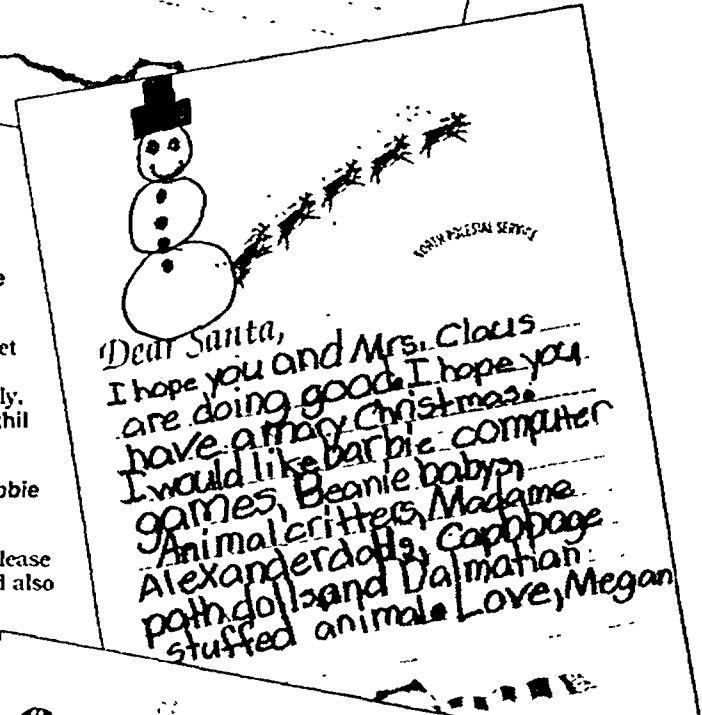 NORTH POLESTAL SERVICE
Dear Santa,
I hope you and Mrs. Claus
are doing good. I hope you
have a mary Christmas.
I would like barbie computer
games, Beanie babys,
Animal critters, Madame
Alexander dolls, Capbbage
path dolls and Dalmatian
stuffed animal. Love, Megan
et
ly.
hil
bbie
lease
also